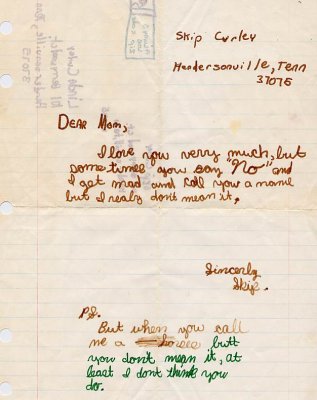 Skip Curley
Hendersonville, Tenn
37075
DEAR Mom,
I love you verry much, but
sometimes you say "No" and
I get mad and call you a name
but I realy don't mean it.
Sincerly
Skip.
P.S.
But when you call
me a horses butt
you don't mean it, at
least I don't think you
do.